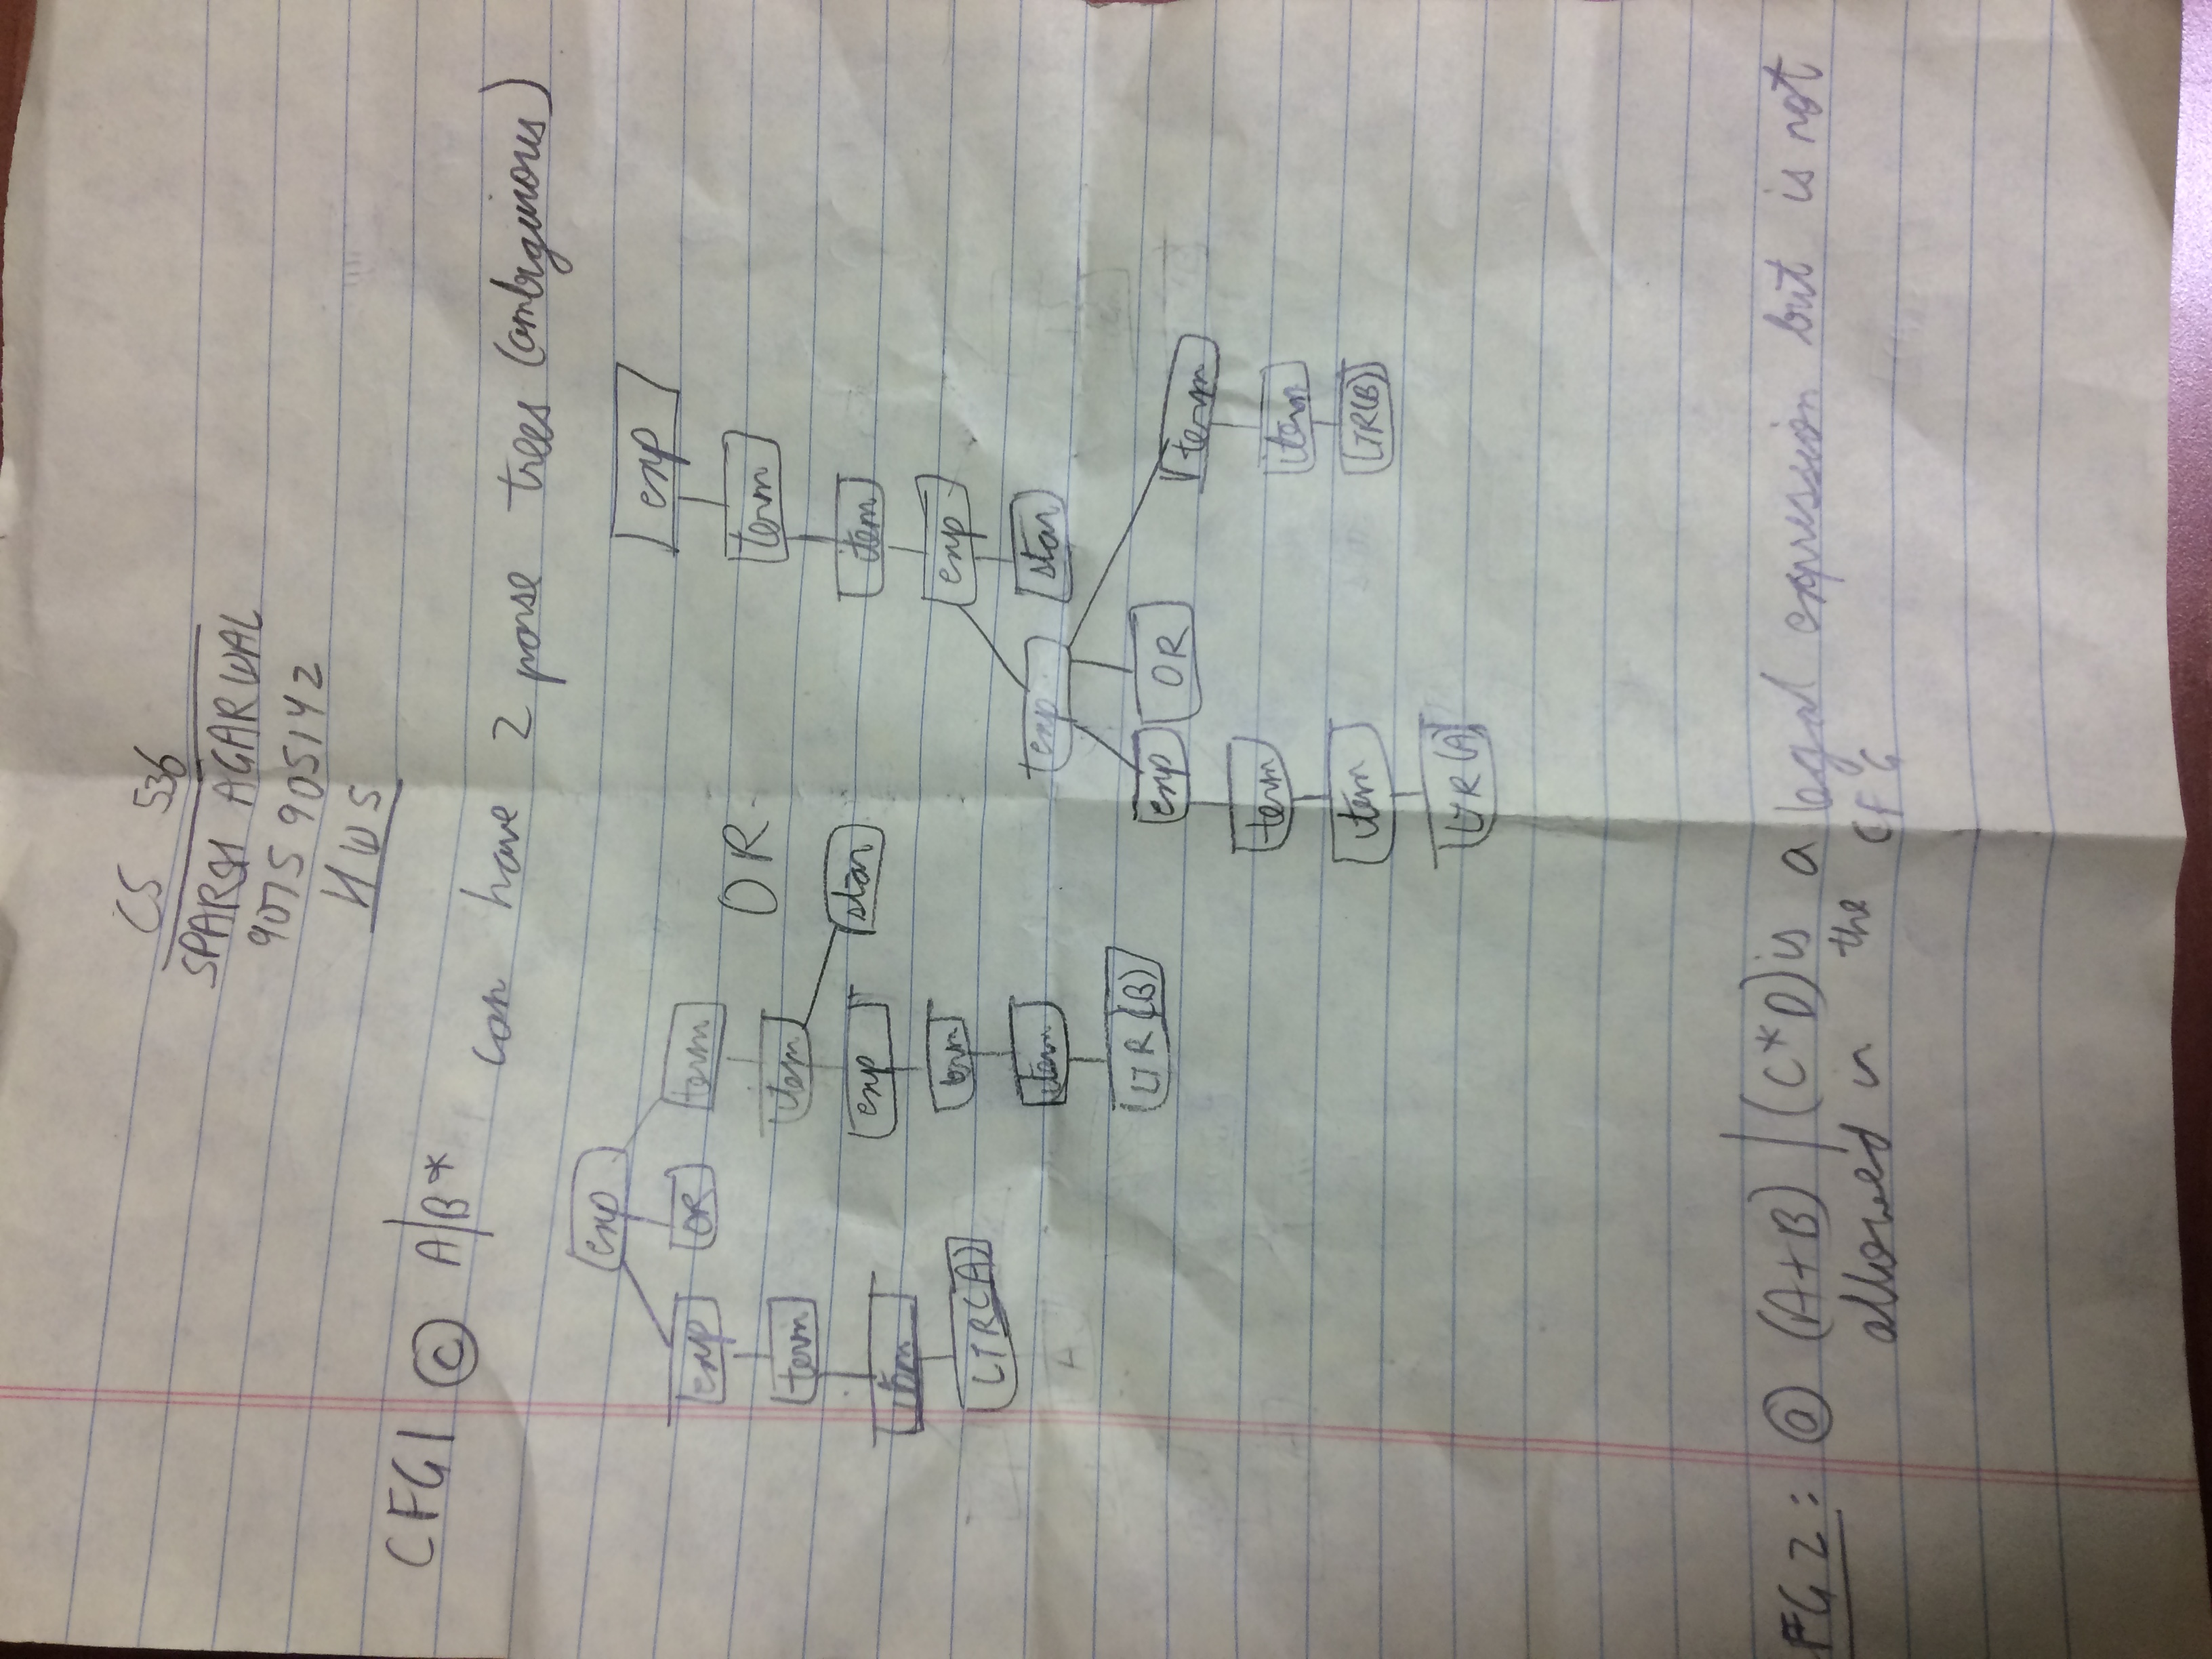 CS 536
SPARSH AGARWAL
9075905142
HW5
CFG1 (c) A|B*
can have 2 parse trees (ambiguous)
exp exp
exp OR term
term
term item OR
exp star item
item term exp
LTR(A) item exp star
A
LTR(B) exp OR term
term item
item LTR(B)
LTR(A)
FG2: (a) (A+B) | (C*D) is a legal expression but is not
allowed in the CFG